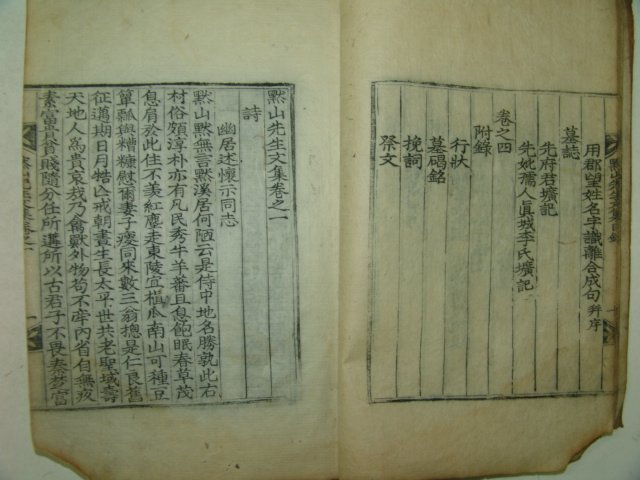 用郡望姓名字識離合成句 并序
墓誌
先府君壙記
先妣孺人眞城李氏壙記
卷之四
附錄
行狀
墓碣銘
挽詞
祭文
黙山先生文集卷之一
詩
幽居述懷示同志
黙山黙無言黙溪居何陋云是侍中地名勝孰此右
村俗頗淳朴亦有凡民秀牛羊蕃且息飽眠春草茂
息肩於此住不羨紅塵走東陵宜種瓜南山可種豆
簞瓢與糟糠慰爾妻子瘦同來數三翁摠是仁良舊
征邁期日月牿亡戒朝晝生長太平世共老聖域壽
天地人爲貴哀哉乃鳥獸外物苟不牽內省自無疚
素富貴貧賤隨分任所遘所以古君子不畏秦楚富